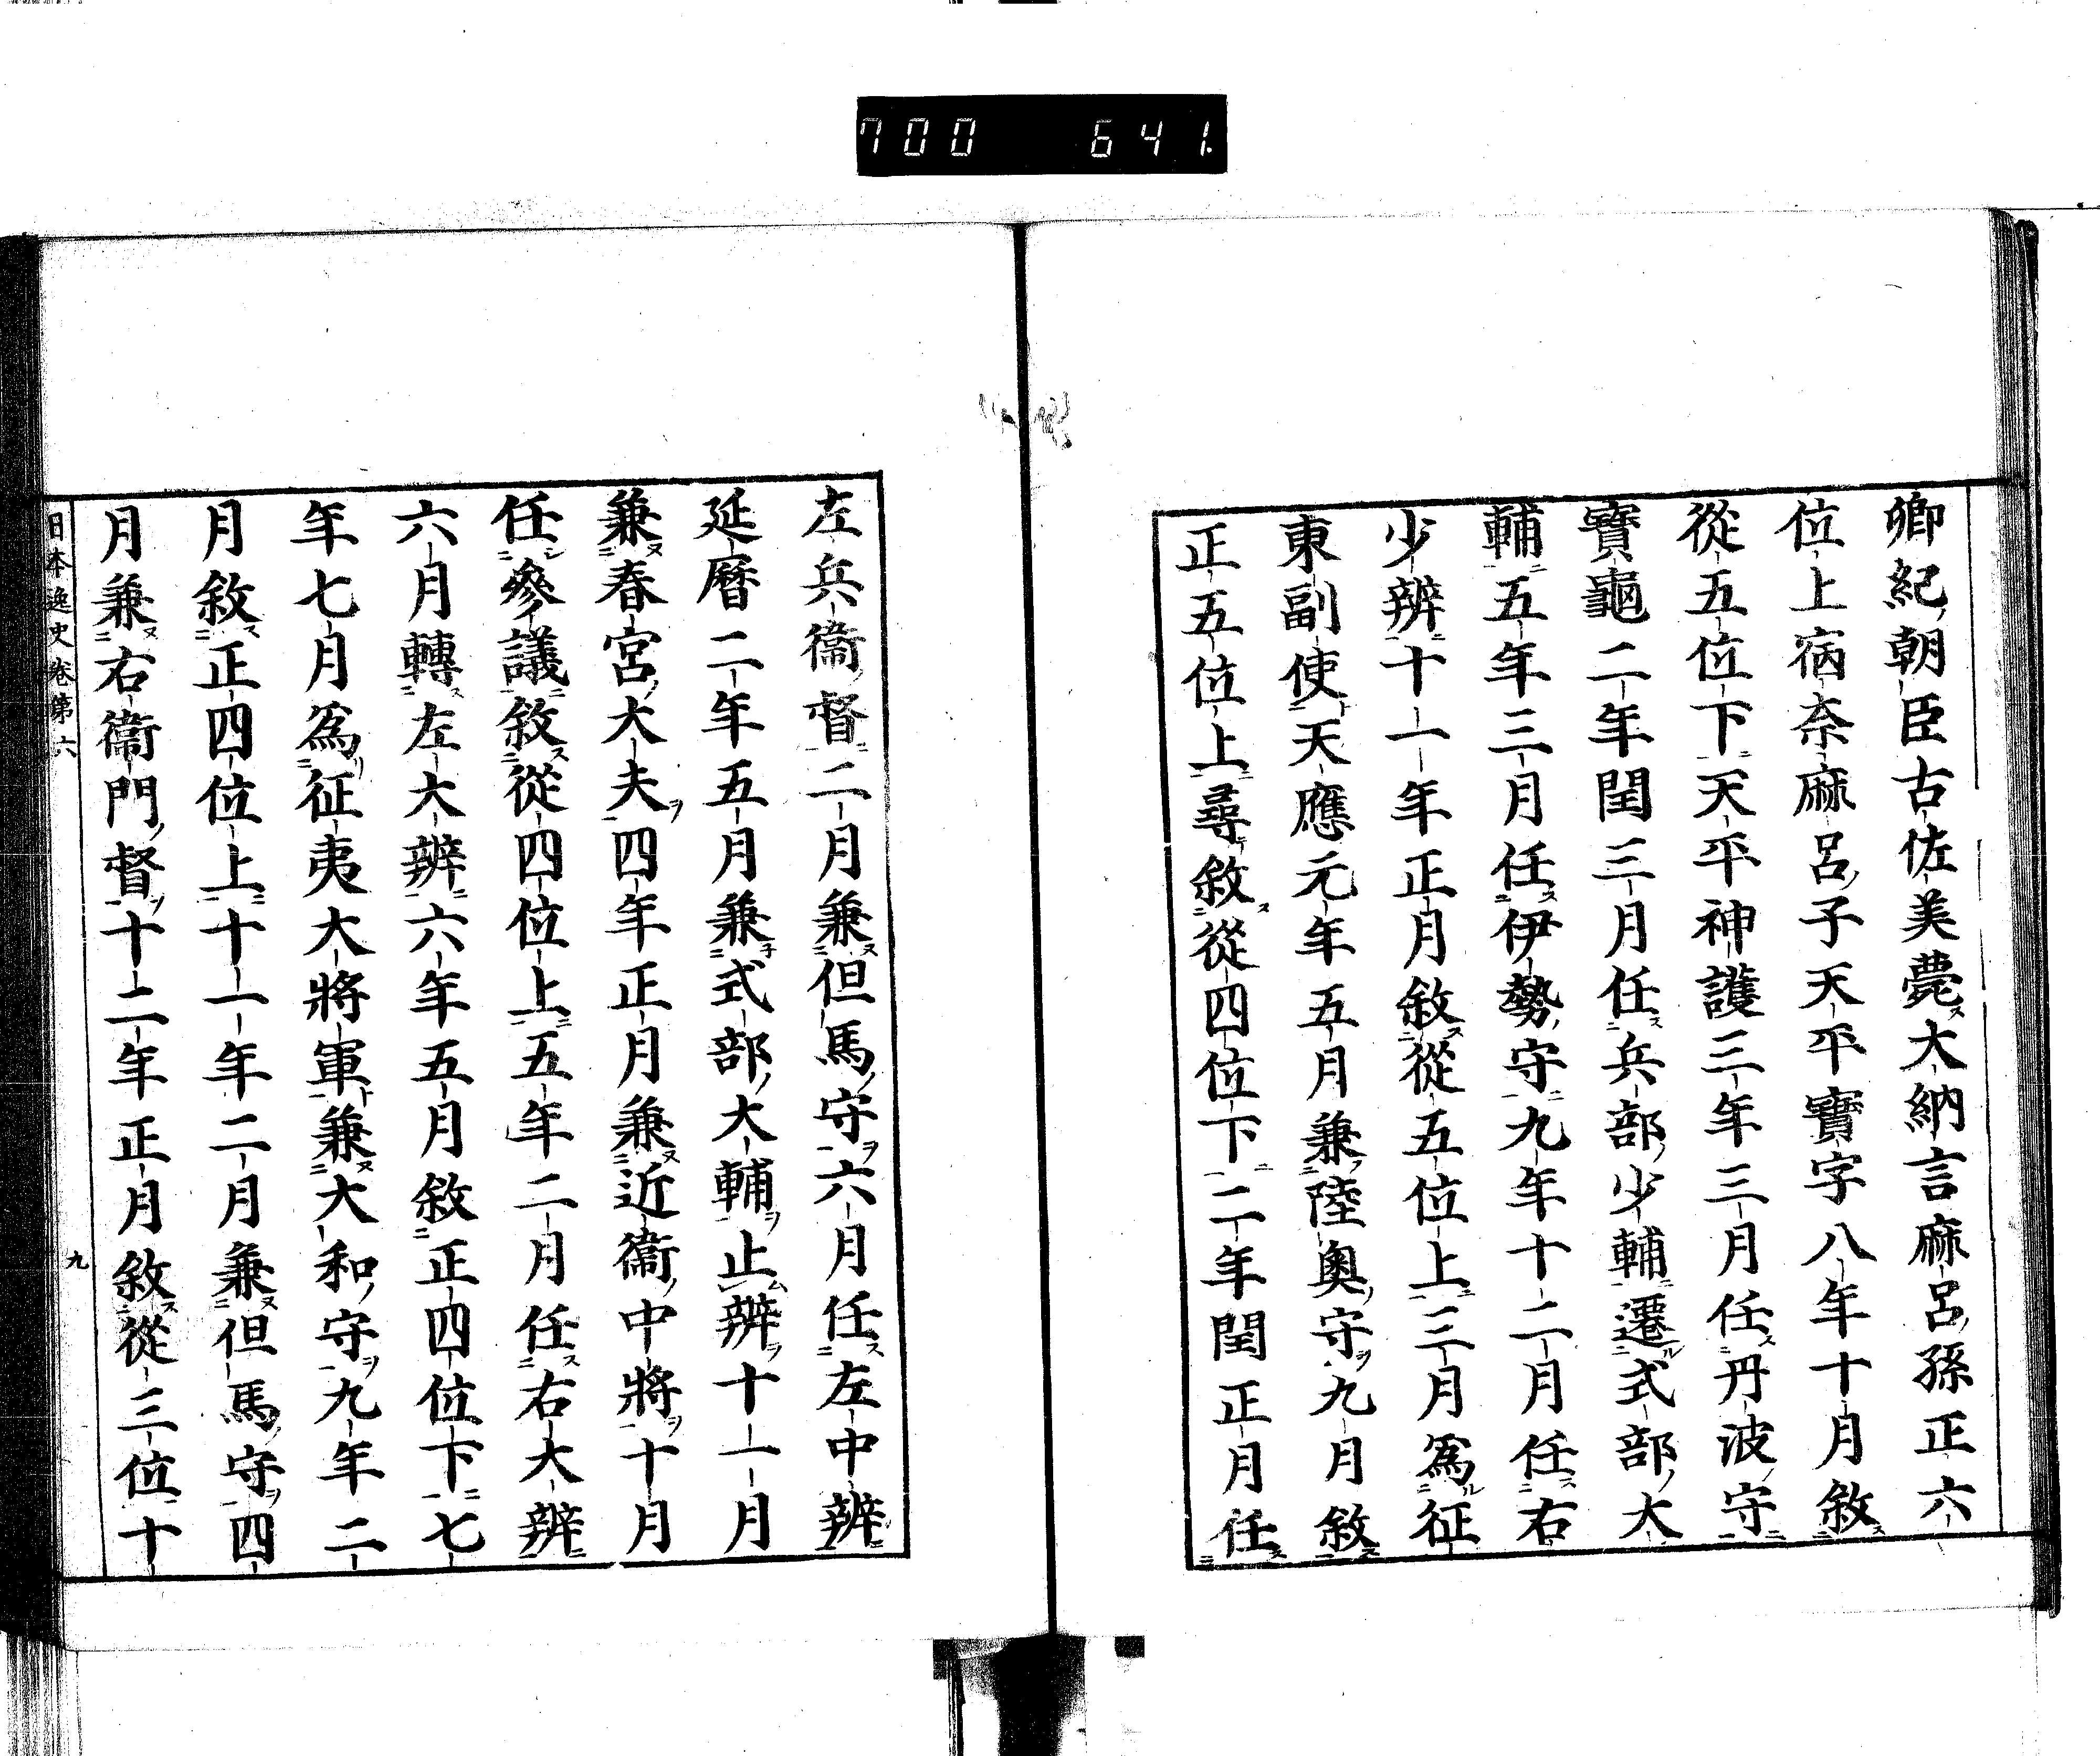 700 641
卿紀朝臣古佐美薨大納言麻呂孫正六
位上宿奈麻呂子天平寶字八年十月敘
從五位下天平神護三年三月任丹波守
寶龜二年閏三月任兵部少輔遷式部大
輔五年三月任伊勢守九年十二月任右
少辨十一年正月敘從五位上三月為征
東副使天應元年五月兼陸奧守九月敘
正五位上尋敘從四位下二年閏正月任
左兵衞督二月兼但馬守六月任左中辨
延曆二年五月兼式部大輔止辨十一月
兼春宮大夫四年正月兼近衞中將十月
任參議敘從四位上五年二月任右大辨
六月轉左大辨六年五月敘正四位下七
年七月為征夷大將軍兼大和守九年二
月敘正四位上十一年二月兼但馬守四
月兼右衞門督十二年正月敘從三位十
日本逸史卷第六 九